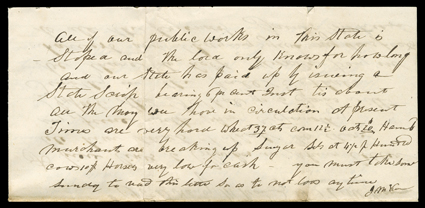 All of our public works in this State is
Stoped and the lord only Knows for how long
and our State has paid up by issuing a
State Scrip bearing 6 pr cent Inst tis about
all the mony we have in circulation at Present
Times are very hard Wheat 37½ cts corn 12½ oats
merchant are breaking up Sugar
cows 10$ Horses very low for cash - you must
Sunday to send this letter so as to not loos any time